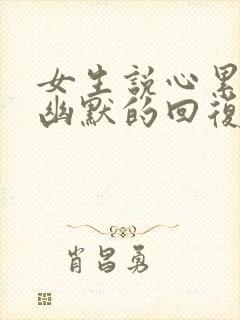 女生説心累
幽默的回復
肖昌勇